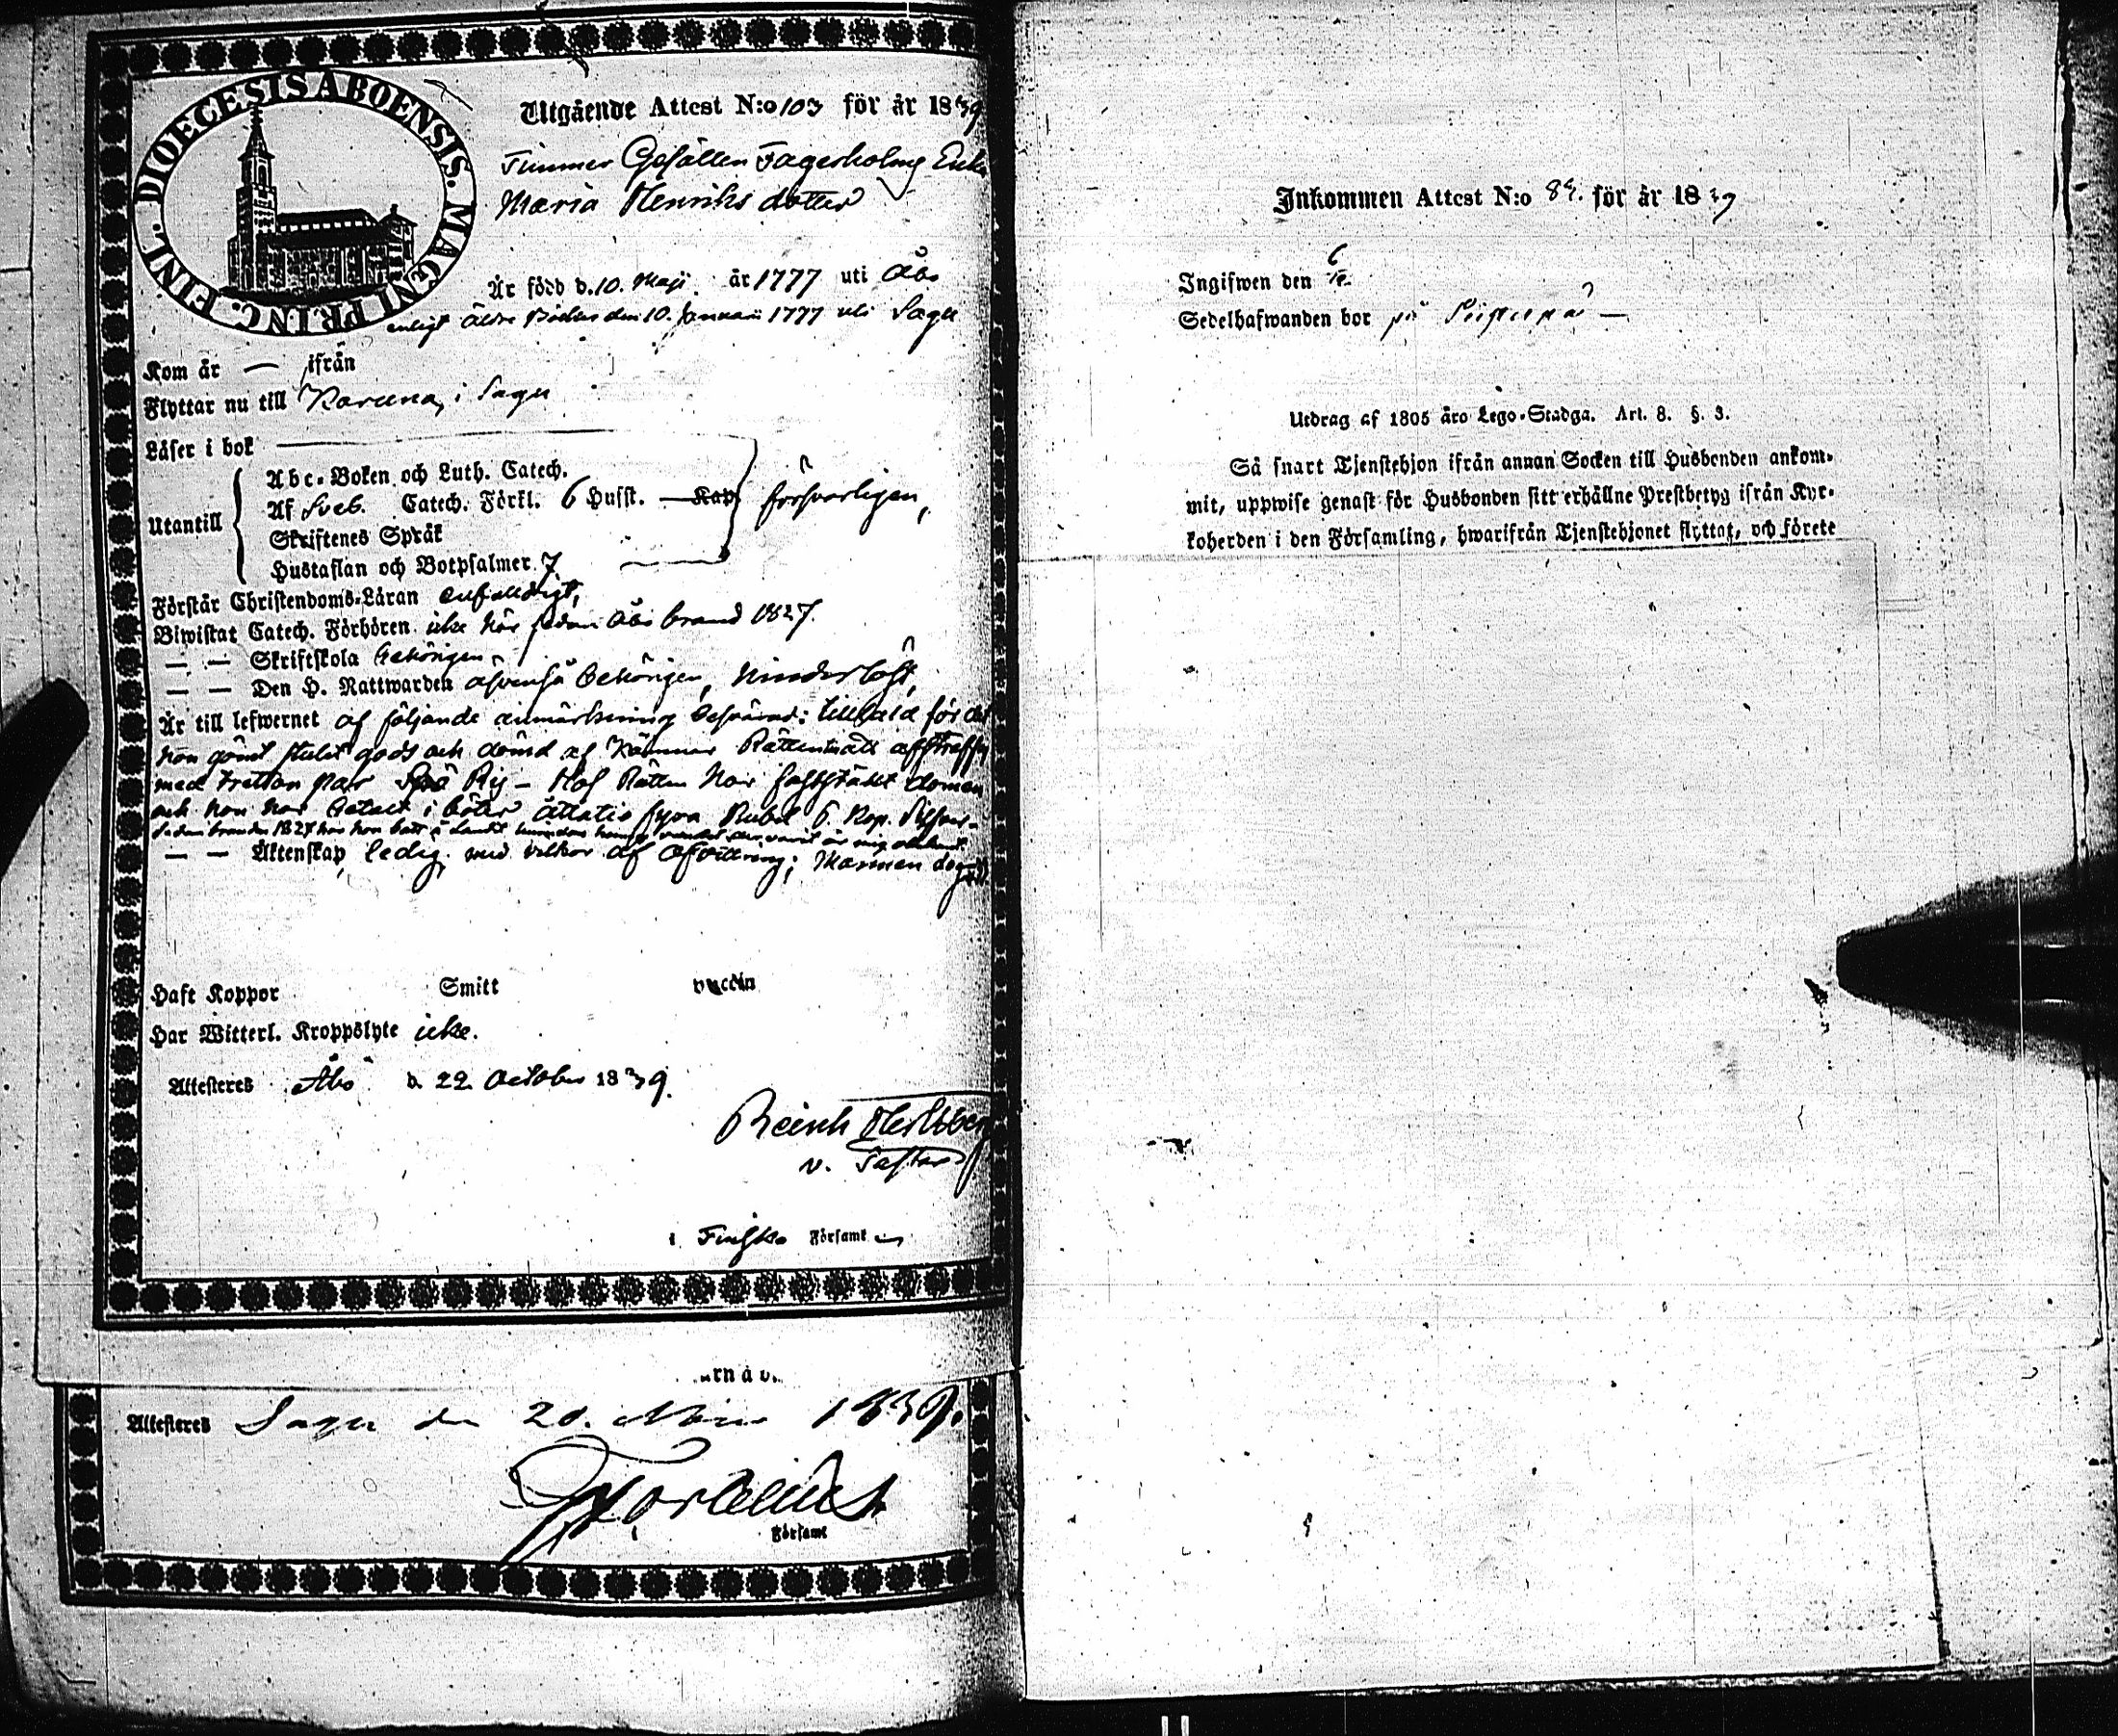 DIOECESIS ABOENSIS. MAGNI PRINC. FINL.
Utgående Attest N:o 103 för år 1839
Timmer Gesällen Fagerholms Enka
Maria Henriks dotter
Är född d. 10. Maji. år 1777 uti Åbo
enligt äldre Böcker den 10. Januarii 1777 uti Sagu
Kom år — ifrån
Flyttar nu till Karuna, i Sagu
Läser i bok
Utantill
Abc-Boken och Luth. Catech.
Af Sveb. Catech. Förkl. 6 Hufst. — Kap. försvarligen,
Skriftenes Språk
Hustaflan och Botpsalmer 7
Förstår Christendoms-Läran enfaldigt,
Biwistat Catech. Förhören icke här sedan Åbo brand 1827.
— — Skriftskola behörigen
— — Den H. Nattwarden äfvenså behörigen, hinderlöst,
Är till lefwernet af följande anmärkning besvärad: tilltald för det
hon gömt stulit gods och dömd af Kämner Rätten att afstraffas
med tretton par Spö Ris — Hof Rätten har fastställt domen
och hon har betalt i böter åttatio fyra Rubel 6. Kop. Silfver.
sedan branden 1827 har hon varit å Landet hurudan hennes vandel der varit är mig obekant
— — Äktenskap ledig, med vilkor af afvittring; Mannen
Haft Koppor Smitt vaccin
Har Witterl. Kroppslyte icke.
Attesteres Åbo d. 22. October 1839.
Reinh Hertzberg
v. Pastor
i Finska Församl
Attesteres Sagu den 20. 1839.
Församl
Inkommen Attest N:o för år 1839
Ingifwen den 6/12
Sedelhafwanden bor på
Utdrag af 1805 åro Lego-Stadga. Art. 8. §. 3.
Så snart Tjenstehjon ifrån annan Socken till Husbonden ankom-
mit, uppwise genast för Husbonden sitt erhållne Prestbetyg ifrån Kyr-
koherden i den Församling, hwarifrån Tjenstehjonet flyttat, och förete